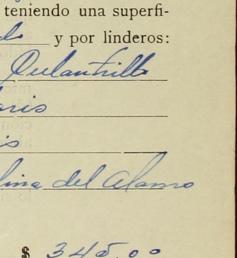 teniendo una superfi-
y por linderos:
Culantrillo
aris
is
lina del Alamo
$ 345.00